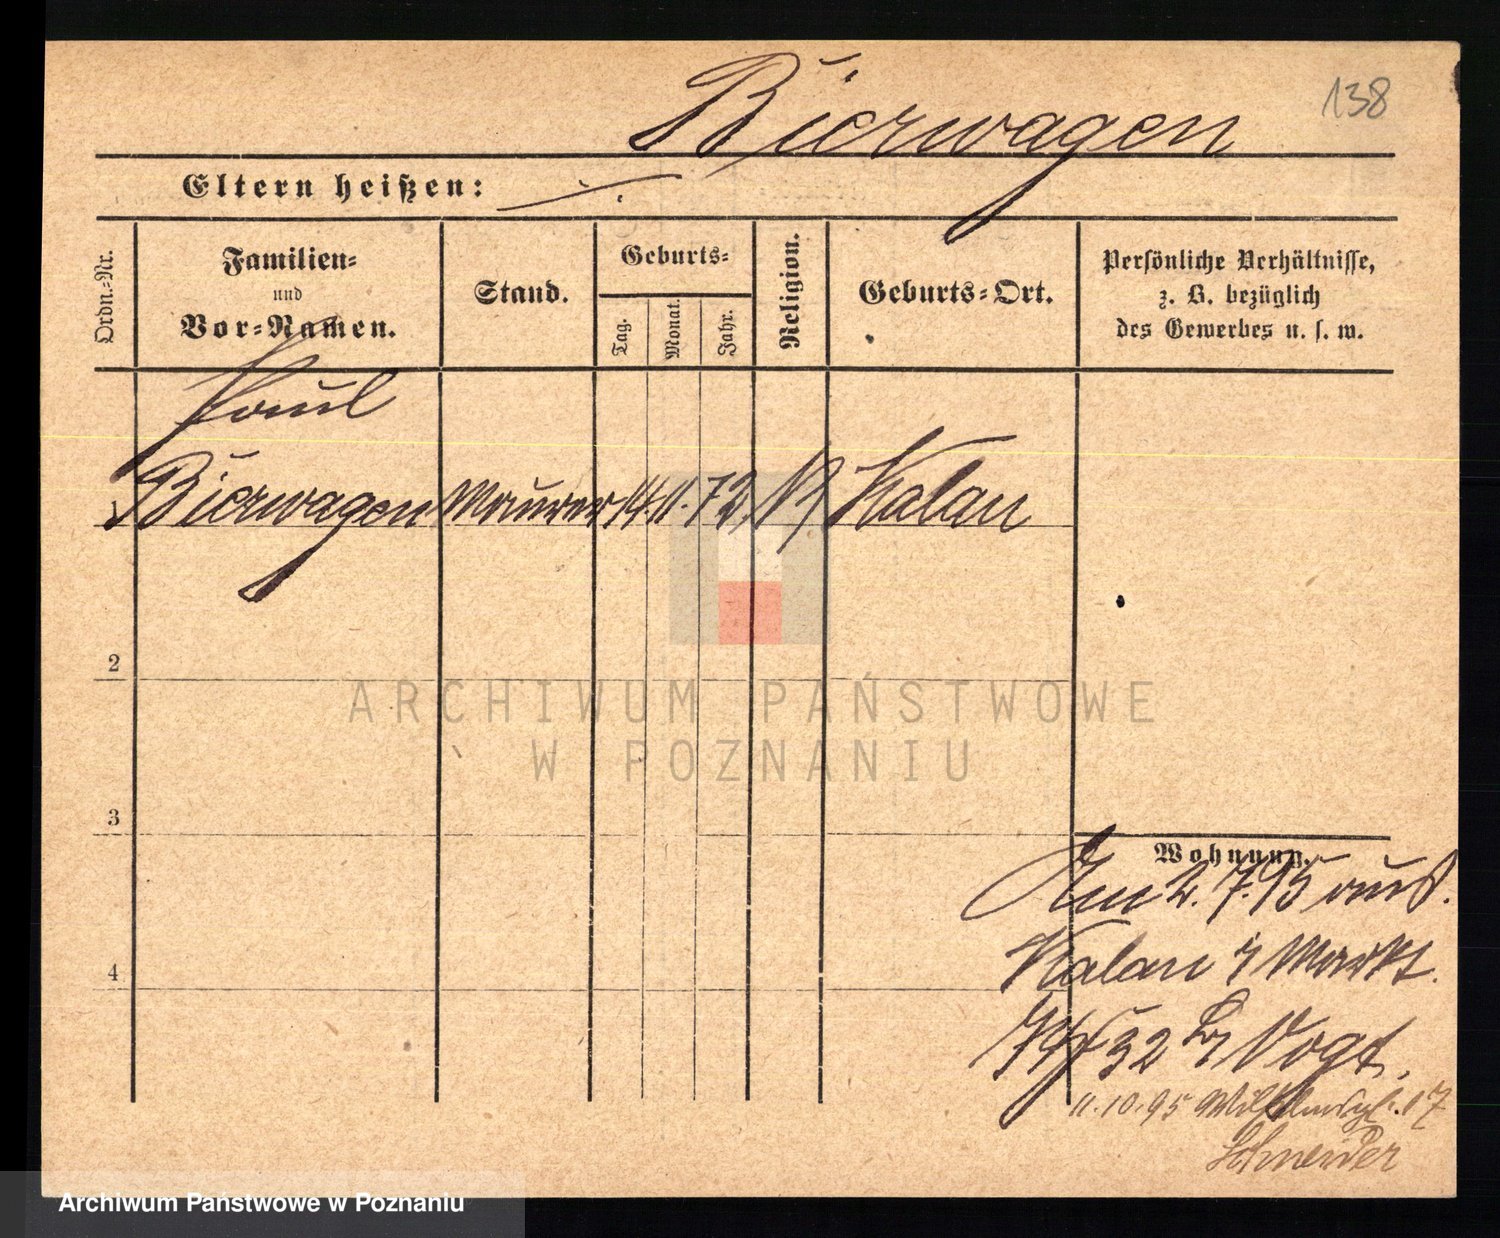 138
Bierwagen
Eltern heißen: ./.
Ordn.-Nr.
Familien-
und
Vor-Namen.
Stand.
Geburts-
Tag.
Monat.
Jahr.
Religion.
Geburts-Ort.
Persönliche Verhältnisse,
z. B. bezüglich
des Gewerbes u. s. w.
Paul
1 Bierwagen Maurer 14. 11. 72. Kalau
2
3
4
Wohnung.
Am 2. 7. 95 aus
Kalau Markt.
32 Vogt.
11. 10. 95 17
Schneider
ARCHIWUM PAŃSTWOWE
W POZNANIU
Archiwum Państwowe w Poznaniu